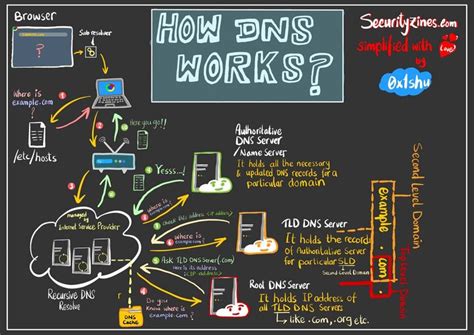 Browser
?
Sub resolver
HOW DNS
WORKS?
Securityzines.com
simplified with
Love
by
0x1shu
Where is
example.com?
/etc/hosts
Here you go!!
Yesss...!
managed by
Internet Service Provider
Recursive DNS
Resolve
DNS
Cache
Authoritative
DNS Server
/Name Server
It holds all the necessary
& updated DNS records for a
particular domain
where is
example.com?
TLD DNS Server
It holds the records
of Authoritative Server
for particular SLD
Second Level Domain
Ask TLD DNS Server(.com)
Here is its address
Do you
Know where is
example.com?
Root DNS Server
It holds IP address of
all TLD DNS Servers
like .com, .org etc.
Second Level Domain
example
.com
Top Level Domain